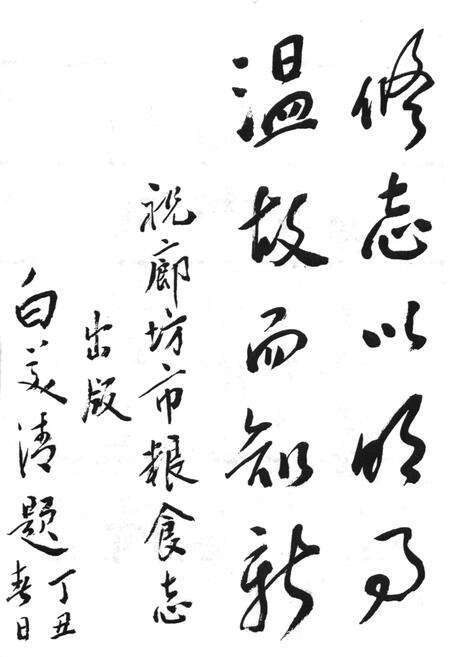 修志以明了
温故而知新
祝廊坊市粮食志
出版
白美清题
丁丑
春日